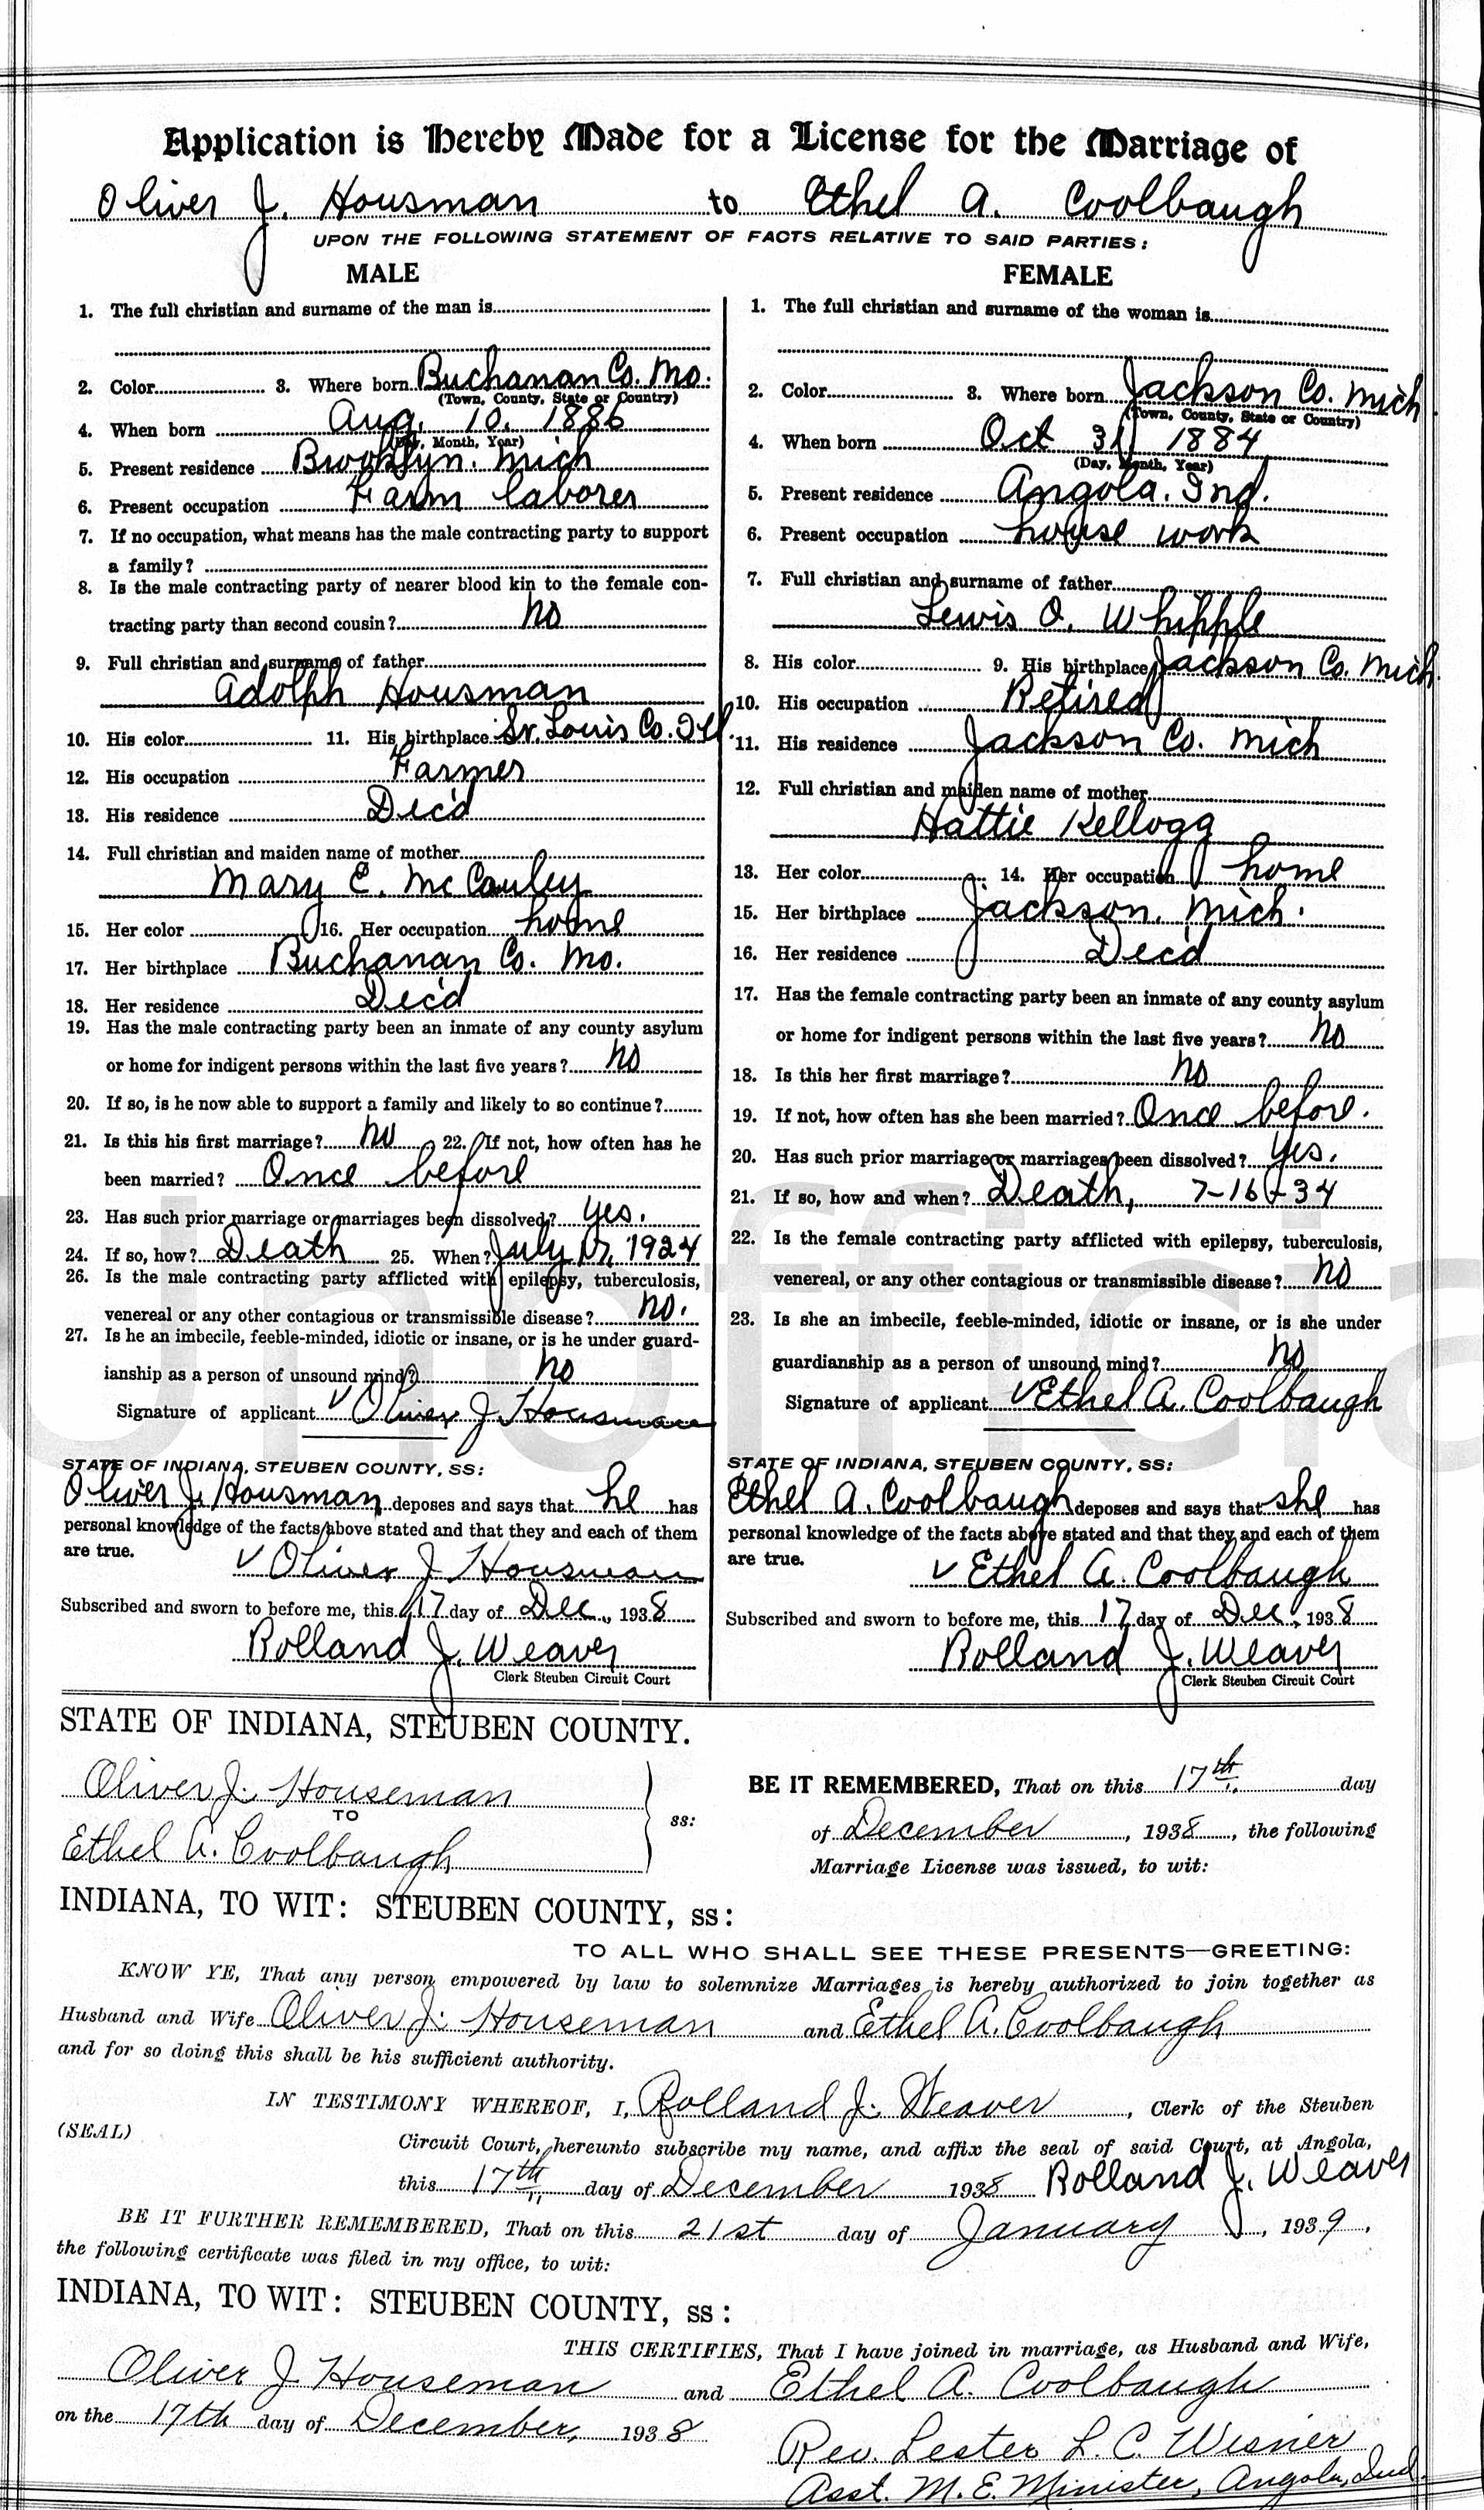 Application is Hereby Made for a License for the Marriage of
Oliver J. Housman to Ethel A. Coolbaugh
UPON THE FOLLOWING STATEMENT OF FACTS RELATIVE TO SAID PARTIES:
MALE
1. The full christian and surname of the man is
2. Color 3. Where born Buchanan Co. Mo.
(Town, County, State or Country)
4. When born Aug. 10, 1886
(Day, Month, Year)
5. Present residence Brooklyn. Mich
6. Present occupation Farm laborer
7. If no occupation, what means has the male contracting party to support
a family?
8. Is the male contracting party of nearer blood kin to the female con-
tracting party than second cousin? no
9. Full christian and surname of father
Adolph Housman
10. His color 11. His birthplace St. Louis Co. Ill.
12. His occupation Farmer
13. His residence Dec'd
14. Full christian and maiden name of mother
Mary E. McCauley
15. Her color 16. Her occupation home
17. Her birthplace Buchanan Co. Mo.
18. Her residence Dec'd
19. Has the male contracting party been an inmate of any county asylum
or home for indigent persons within the last five years? no
20. If so, is he now able to support a family and likely to so continue?
21. Is this his first marriage? no 22. If not, how often has he
been married? Once before
23. Has such prior marriage or marriages been dissolved? yes.
24. If so, how? Death 25. When? July 17, 1924
26. Is the male contracting party afflicted with epilepsy, tuberculosis,
venereal or any other contagious or transmissible disease? no.
27. Is he an imbecile, feeble-minded, idiotic or insane, or is he under guard-
ianship as a person of unsound mind? no
Signature of applicant Oliver J. Housman
STATE OF INDIANA, STEUBEN COUNTY, SS:
Oliver J. Housman deposes and says that he has
personal knowledge of the facts above stated and that they and each of them
are true.
Oliver J. Housman
Subscribed and sworn to before me, this 17 day of Dec., 1938
Rolland J. Weaver
Clerk Steuben Circuit Court
FEMALE
1. The full christian and surname of the woman is
2. Color 3. Where born Jackson Co. Mich
(Town, County, State or Country)
4. When born Oct 31 1884
(Day, Month, Year)
5. Present residence Angola. Ind.
6. Present occupation house work
7. Full christian and surname of father
Lewis O. Whipple
8. His color 9. His birthplace Jackson Co. Mich.
10. His occupation Retired
11. His residence Jackson Co. Mich
12. Full christian and maiden name of mother
Hattie Kellogg
13. Her color 14. Her occupation home
15. Her birthplace Jackson, Mich.
16. Her residence Dec'd
17. Has the female contracting party been an inmate of any county asylum
or home for indigent persons within the last five years? no
18. Is this her first marriage? no
19. If not, how often has she been married? Once before.
20. Has such prior marriage or marriages been dissolved? yes.
21. If so, how and when? Death, 7-16-34
22. Is the female contracting party afflicted with epilepsy, tuberculosis,
venereal, or any other contagious or transmissible disease? no
23. Is she an imbecile, feeble-minded, idiotic or insane, or is she under
guardianship as a person of unsound mind? no
Signature of applicant Ethel A. Coolbaugh
STATE OF INDIANA, STEUBEN COUNTY, SS:
Ethel A. Coolbaugh deposes and says that she has
personal knowledge of the facts above stated and that they and each of them
are true.
Ethel A. Coolbaugh
Subscribed and sworn to before me, this 17 day of Dec., 1938
Rolland J. Weaver
Clerk Steuben Circuit Court
Unofficia
STATE OF INDIANA, STEUBEN COUNTY.
Oliver J. Houseman
TO
Ethel A. Coolbaugh
ss:
BE IT REMEMBERED, That on this 17th day
of December, 1938, the following
Marriage License was issued, to wit:
INDIANA, TO WIT: STEUBEN COUNTY, ss:
TO ALL WHO SHALL SEE THESE PRESENTS—GREETING:
KNOW YE, That any person empowered by law to solemnize Marriages is hereby authorized to join together as
Husband and Wife Oliver J. Houseman and Ethel A. Coolbaugh
and for so doing this shall be his sufficient authority.
IN TESTIMONY WHEREOF, I, Rolland J. Weaver, Clerk of the Steuben
(SEAL)
Circuit Court, hereunto subscribe my name, and affix the seal of said Court, at Angola,
this 17th day of December 1938 Rolland J. Weaver
BE IT FURTHER REMEMBERED, That on this 21st day of January, 1939,
the following certificate was filed in my office, to wit:
INDIANA, TO WIT: STEUBEN COUNTY, ss:
THIS CERTIFIES, That I have joined in marriage, as Husband and Wife,
Oliver J. Houseman and Ethel A. Coolbaugh
on the 17th day of December, 1938
Rev. Lester L. C. Wisner
Asst. M. E. Minister, Angola, Ind.